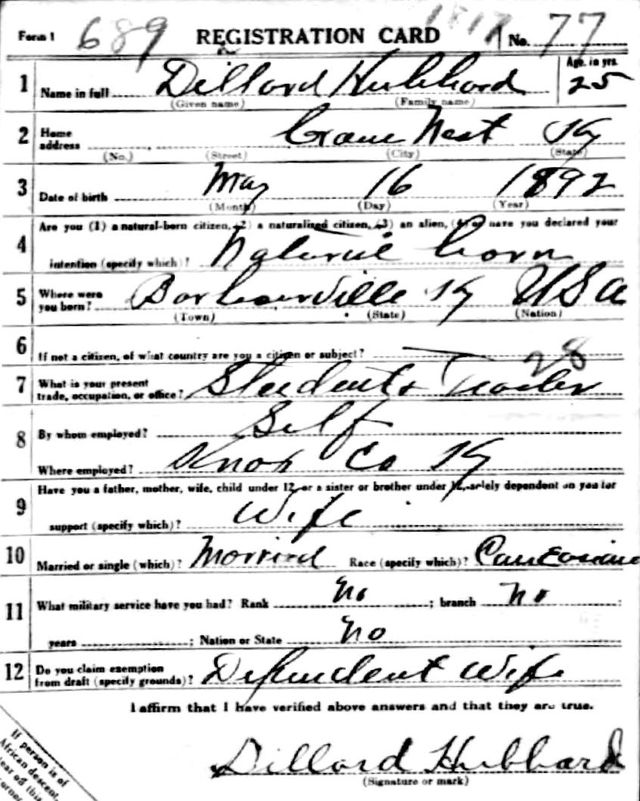 Form 1 689 REGISTRATION CARD 1817 No. 77
1 Name in full Dillard Hubbard Age, in yrs. 25
(Given name) (Family name)
2 Home address Crane Nest Ky
(No.) (Street) (City) (State)
3 Date of birth May 16 1892
(Month) (Day) (Year)
Are you (1) a natural-born citizen, (2) a naturalized citizen, (3) an alien, (4) or have you declared your
4 intention (specify which)? Natural born
5 Where were you born? Barbourville Ky USA
(Town) (State) (Nation)
6 If not a citizen, of what country are you a citizen or subject?
28
7 What is your present trade, occupation, or office? Student & Teacher
8 By whom employed? Self
Where employed? Knox Co Ky
Have you a father, mother, wife, child under 12, or a sister or brother under 12, solely dependent on you for
9 support (specify which)? Wife
10 Married or single (which)? Married Race (specify which)? Caucasian
11 What military service have you had? Rank No ; branch No
years ; Nation or State No
12 Do you claim exemption from draft (specify grounds)? Dependent Wife
I affirm that I have verified above answers and that they are true.
Dillard Hubbard
(Signature or mark)
If person is of
African descent,
tear off this
corner